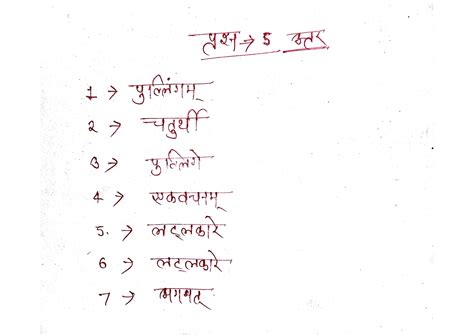 प्रश्न → 5 उत्तर
1 → पुल्लिंगम्
2 → चतुर्थी
3 → पुल्लिंगे
4 → एकवचनम्
5. → लट्लकारे
6 → लट्लकारे
7 →